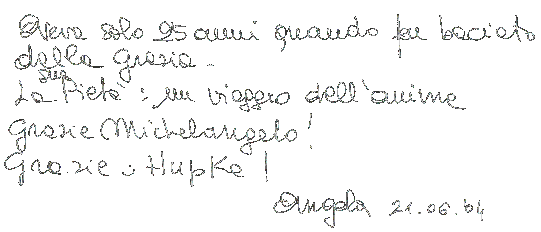 Aveva solo 25 anni quando fu baciato
dalla Grazia -
La sua Pietà: un viaggio dell'anima
Grazie Michelangelo!
Grazie: Hupka!
Angela 21.06.04